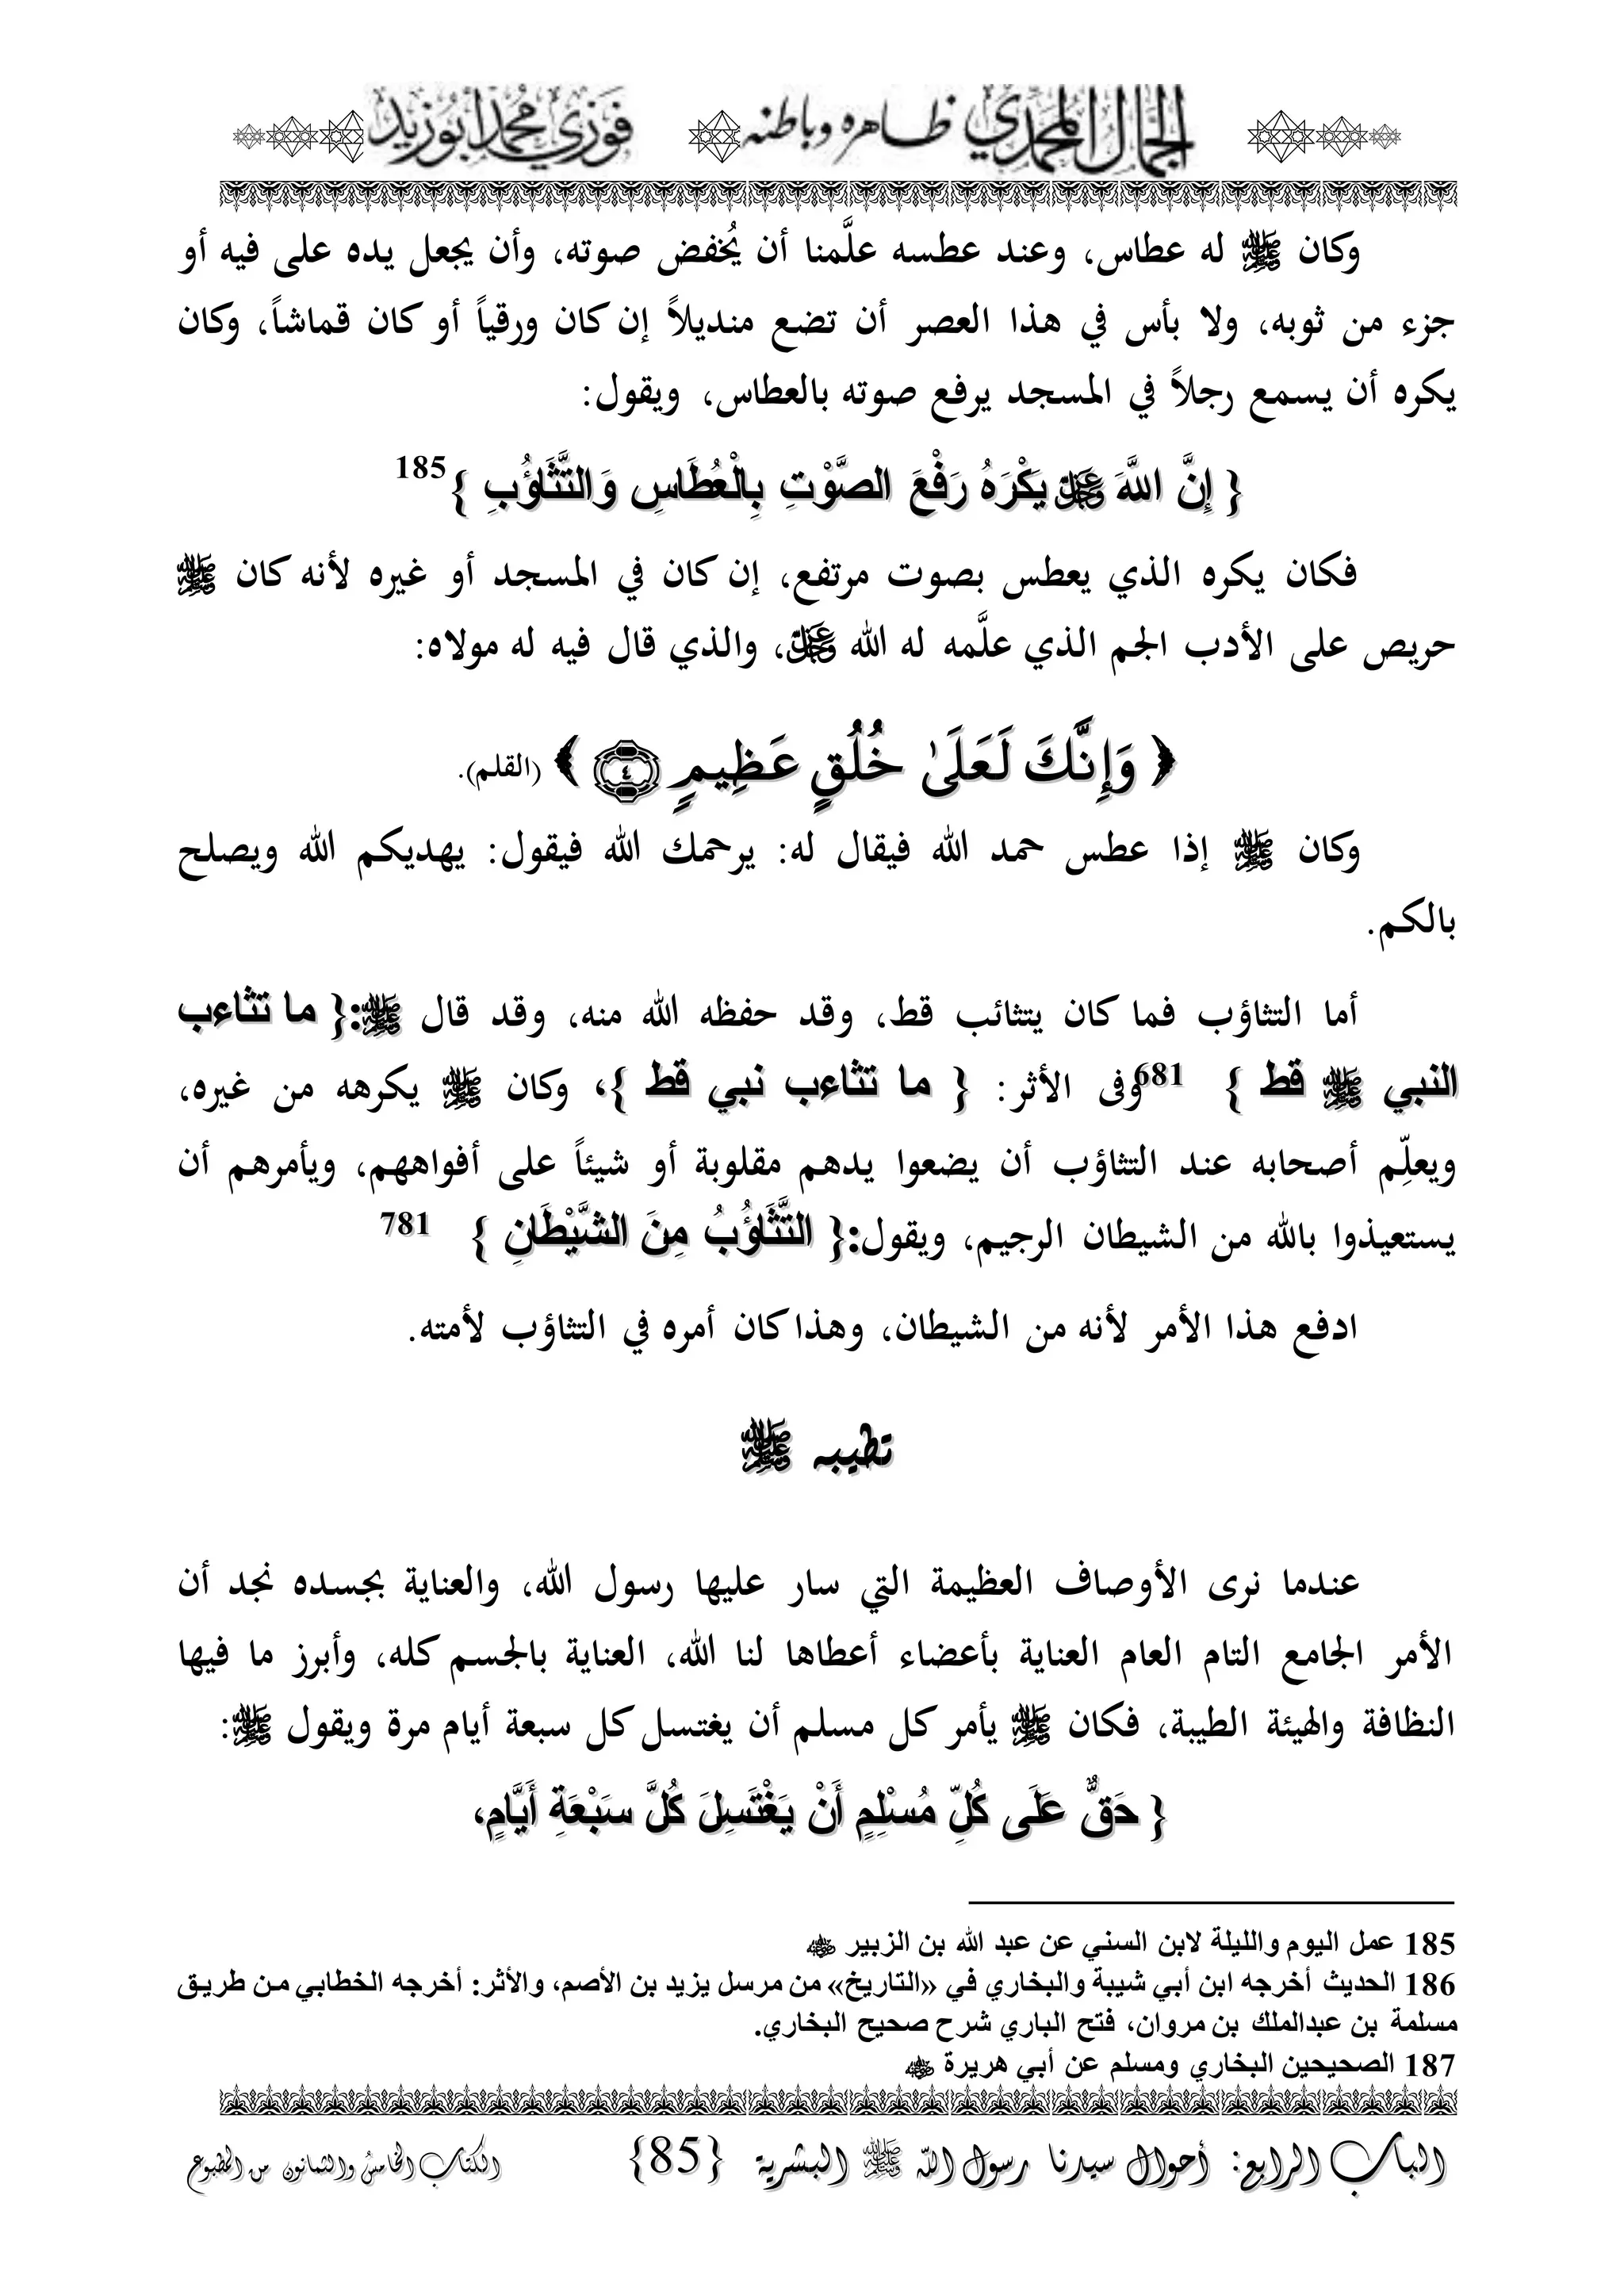 الجمال المحمدي ظاهره وباطنه فوزي محمد أبوزيد
وكان ﷺ له عطاس، وعند عطسه علَّمنا أن يُخفض صوته، وأن يجعل يده على فيه أو
جزء من ثوبه، ولا بأس في هذا العصر أن تضع منديلاً إن كان ورقياً أو كان قماشاً، وكان
يكره أن يسمع رجلاً في المسجد يرفع صوته بالعطاس، ويقول:
{ إِنَّ اللَّهَ عز وجل يَكْرَهُ رَفْعَ الصَّوْتِ بِالْعُطَاسِ وَالتَّثَاؤُبِ }185
فكان يكره الذي يعطس بصوت مرتفع، إن كان في المسجد أو غيره لأنه كان ﷺ
حريص على الأدب الجم الذي علَّمه له الله عز وجل، والذي قال فيه له مولاه:
﴿ وَإِنَّكَ لَعَلَىٰ خُلُقٍ عَظِيمٍ ٤ ﴾ (القلم).
وكان ﷺ إذا عطس حمد الله فيقال له: يرحمك الله فيقول: يهديكم الله ويصلح
بالكم.
أما التثاؤب فما كان يتثائب قط، وقد حفظه الله منه، وقد قال ﷺ:{ ما تثاءب
النبي ﷺ قط } 681وفى الأثر: { ما تثاءب نبي قط }، وكان ﷺ يكرهه من غيره،
ويعلِّم أصحابه عند التثاؤب أن يضعوا يدهم مقلوبة أو شيئاً على أفواههم، ويأمرهم أن
يستعيذوا بالله من الشيطان الرجيم، ويقول:{ التَّثَاؤُبُ مِنَ الشَّيْطَانِ } 781
ادفع هذا الأمر لأنه من الشيطان، وهذا كان أمره في التثاؤب لأمته.
تطيبه ﷺ
عندما نرى الأوصاف العظيمة التي سار عليها رسول الله، والعناية بجسده نجد أن
الأمر الجامع التام العام العناية بأعضاء أعطاها لنا الله، العناية بالجسم كله، وأبرز ما فيها
النظافة والهيئة الطيبة، فكان ﷺ يأمر كل مسلم أن يغتسل كل سبعة أيام مرة ويقول ﷺ:
{ حَقٌّ عَلَى كُلِّ مُسْلِمٍ أَنْ يَغْتَسِلَ كُلَّ سَبْعَةِ أَيَّامٍ،
185 عمل اليوم والليلة لابن السني عن عبد الله بن الزبير
186 الحديث أخرجه ابن أبي شيبة والبخاري في «التاريخ» من مرسل يزيد بن الأصم، والأثر: أخرجه الخطابي من طريق
مسلمة بن عبدالملك بن مروان، فتح الباري شرح صحيح البخاري.
187 الصحيحين البخاري ومسلم عن أبي هريرة
الباب الرابع: أحوال سيدنا رسول الله ﷺ البشرية {85} الكتاب الخامس والثمانون من المطبوع